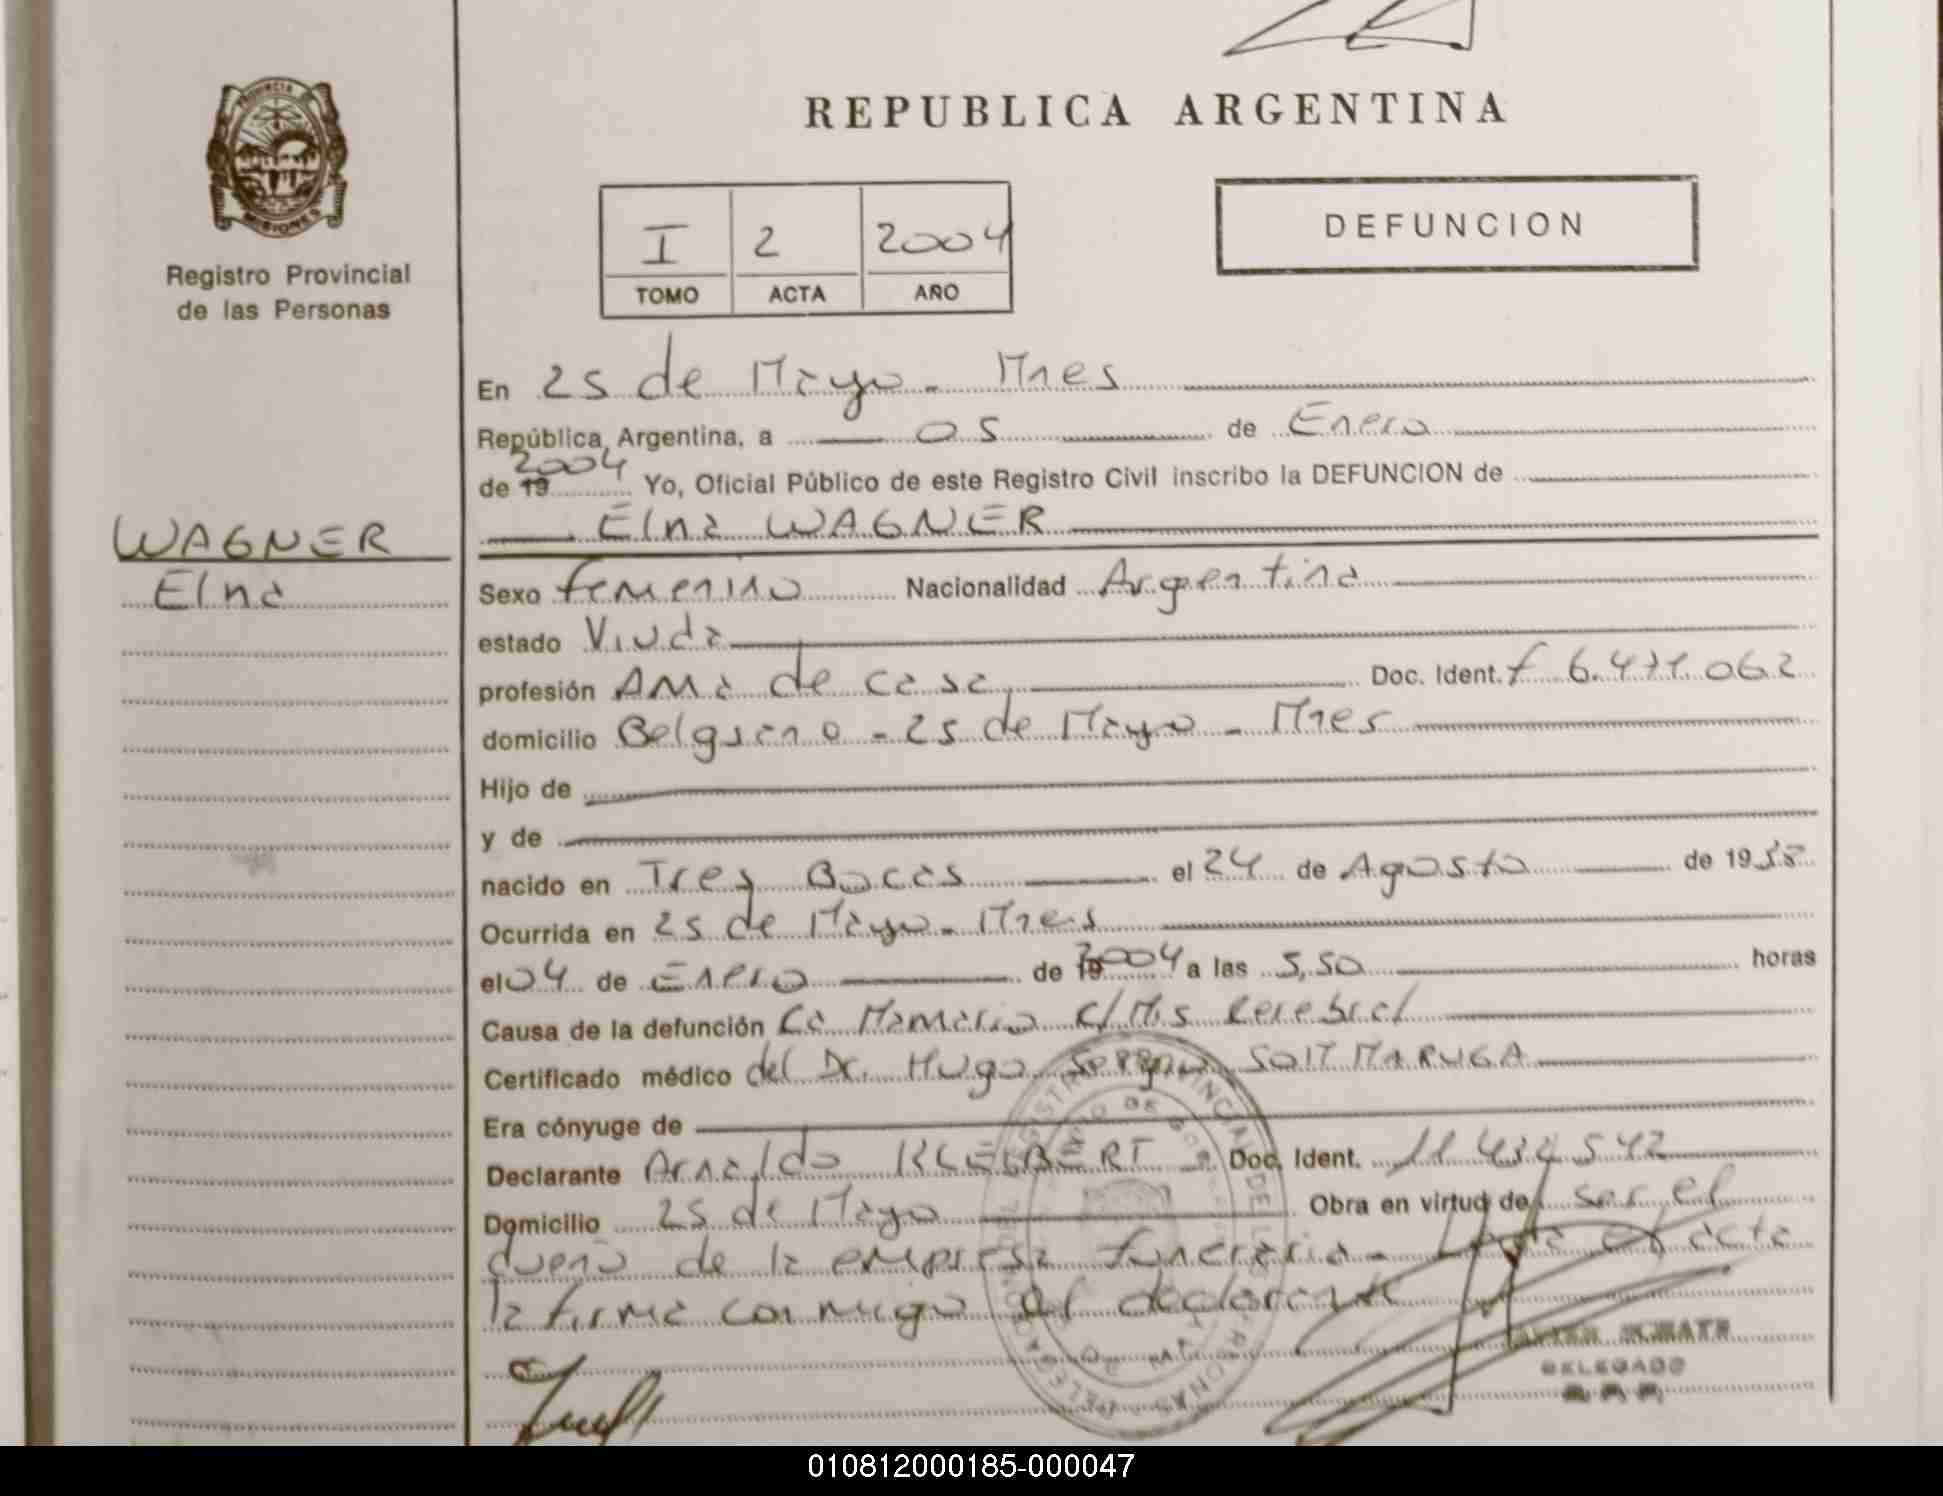 REPUBLICA ARGENTINA
PROVINCIA
MISIONES
Registro Provincial
de las Personas
I 2 2004
TOMO ACTA AÑO
DEFUNCION
En 25 de Mayo - Mnes
República Argentina, a 05 de Enero
de 19 2004 Yo, Oficial Público de este Registro Civil inscribo la DEFUNCION de
Elna WAGNER
WAGNER
Elna
Sexo femenino Nacionalidad Argentina
estado Viuda
profesión Ama de casa Doc. Ident. f 6.471.062
domicilio Belgrano - 25 de Mayo - Mnes
Hijo de
y de
nacido en Tres Bocas el 24 de Agosto de 19
Ocurrida en 25 de Mayo - Mnes
el 04 de Enero de 19 2004 a las 5,50 horas
Causa de la defunción Ca Mamario c/Mts Cerebral
Certificado médico del Dr. Hugo Sergio
Era cónyuge de
Declarante Arnaldo Doc. Ident.
Domicilio 25 de Mayo Obra en virtud de ser el
dueño de la empresa funeraria - el acta
la firma conmigo el declarante
DELEGADO
010812000185-000047